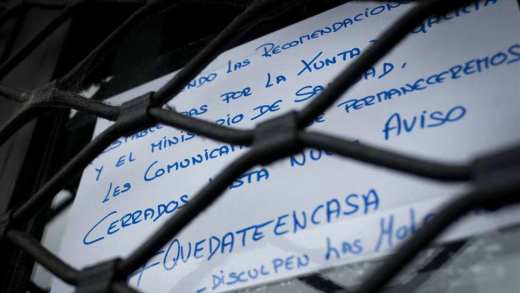 LAS RECOMENDACION
POR LA XUNTA GALICIA
Y EL MINISTERIO DE SANIDAD,
LES COMUNICA PERMANECEREMOS
CERRADOS AVISO
#QUEDATEENCASA
DISCULPEN LAS